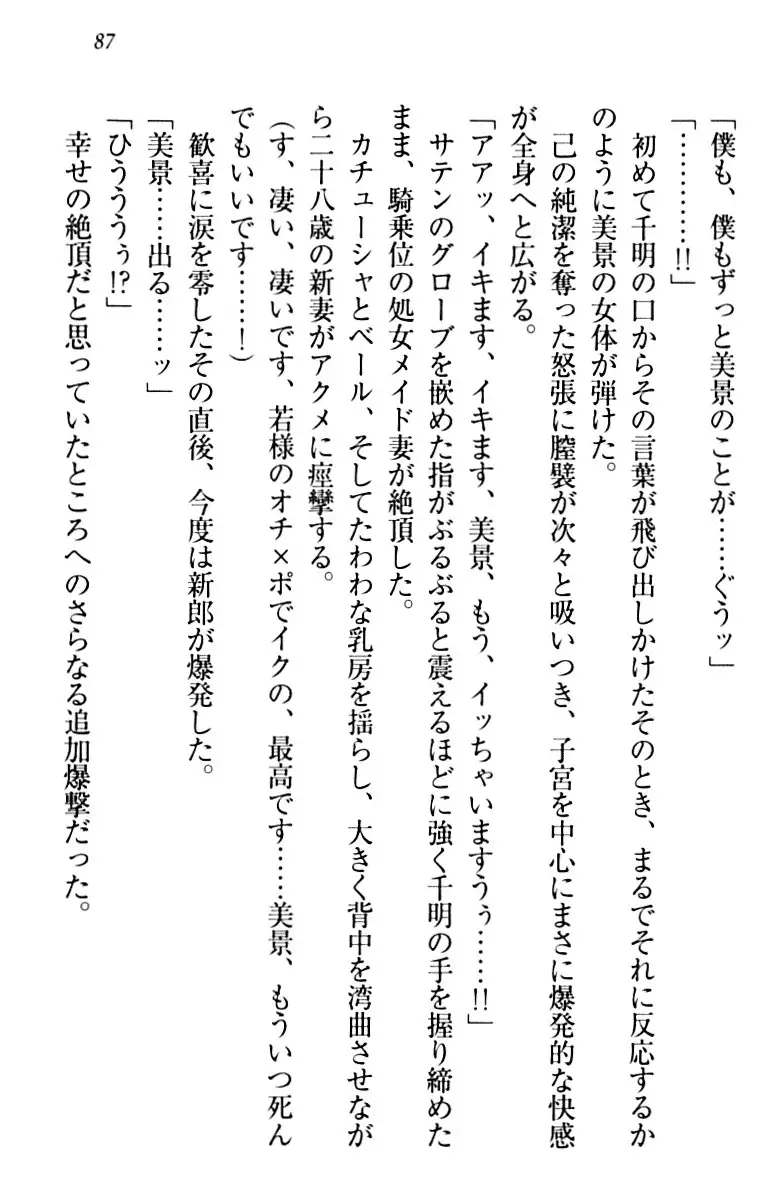 87
「僕も、僕もずっと美景のことが……ぐうッ」
「…………!!」
　初めて千明の口からその言葉が飛び出しかけたそのとき、まるでそれに反応するか
のように美景の女体が弾けた。
　己の純潔を奪った怒張に膣襞が次々と吸いつき、子宮を中心にまさに爆発的な快感
が全身へと広がる。
「アアッ、イキます、イキます、美景、もう、イッちゃいますうぅ……!!」
　サテンのグローブを嵌めた指がぶるぶると震えるほどに強く千明の手を握り締めた
まま、騎乗位の処女メイド妻が絶頂した。
　カチューシャとベール、そしてたわわな乳房を揺らし、大きく背中を湾曲させなが
ら二十八歳の新妻がアクメに痙攣する。
（す、凄い、凄いです、若様のオチ×ポでイクの、最高です……美景、もういつ死ん
でもいいです……！）
　歓喜に涙を零したその直後、今度は新郎が爆発した。
「美景……出る……ッ」
「ひうううぅ!?」
　幸せの絶頂だと思っていたところへのさらなる追加爆撃だった。